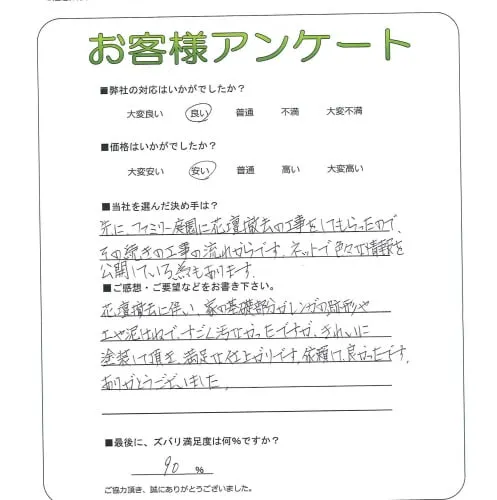 お客様アンケート
■弊社の対応はいかがでしたか?
大変良い 良い 普通 不満 大変不満
■価格はいかがでしたか?
大変安い 安い 普通 高い 大変高い
■当社を選んだ決め手は?
先に、ファミリー庭園に花壇撤去の工事をしてもらったので、
その続きの工事の流れからです。ネットで色々な情報を
公開している為もあります。
■ご感想・ご要望などをお書き下さい。
花壇撤去に伴い、家の基礎部分がレンガの跡形や
土や泥はねで、すごく汚なかったですが、きれいに
塗装して頂き、満足な仕上がりです。依頼して良かったです。
ありがとうございました。
■最後に、ズバリ満足度は何%ですか?
90 %
ご協力頂き、誠にありがとうございました。